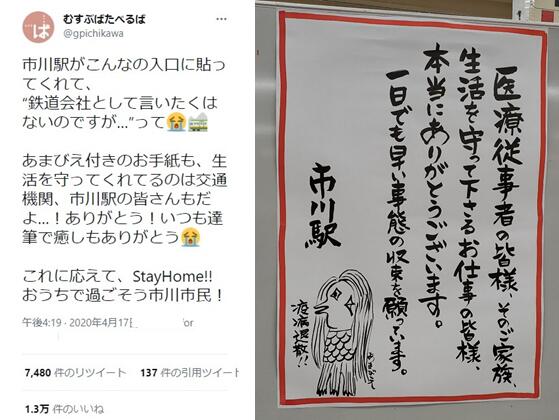 ば
むすぶばたべるば
@gpichikawa
市川駅がこんなの入口に貼っ
てくれて、
“鉄道会社として言いたくは
ないのですが…”って😭🚃
あまびえ付きのお手紙も、生
活を守ってくれてるのは交通
機関、市川駅の皆さんもだ
よ…！ありがとう！いつも達
筆で癒しもありがとう😭
これに応えて、StayHome!!
おうちで過ごそう市川市民！
午後4:19・2020年4月17日
or
7,480 件のリツイート 137 件の引用ツイート
1.3万 件のいいね
医療従事者の皆様、そのご家族、
生活を守って下さるお仕事の皆様、
本当にありがとうございます。
一日でも早い事態の収束を願っています。
市川駅
疫病退散!!
あまびえ